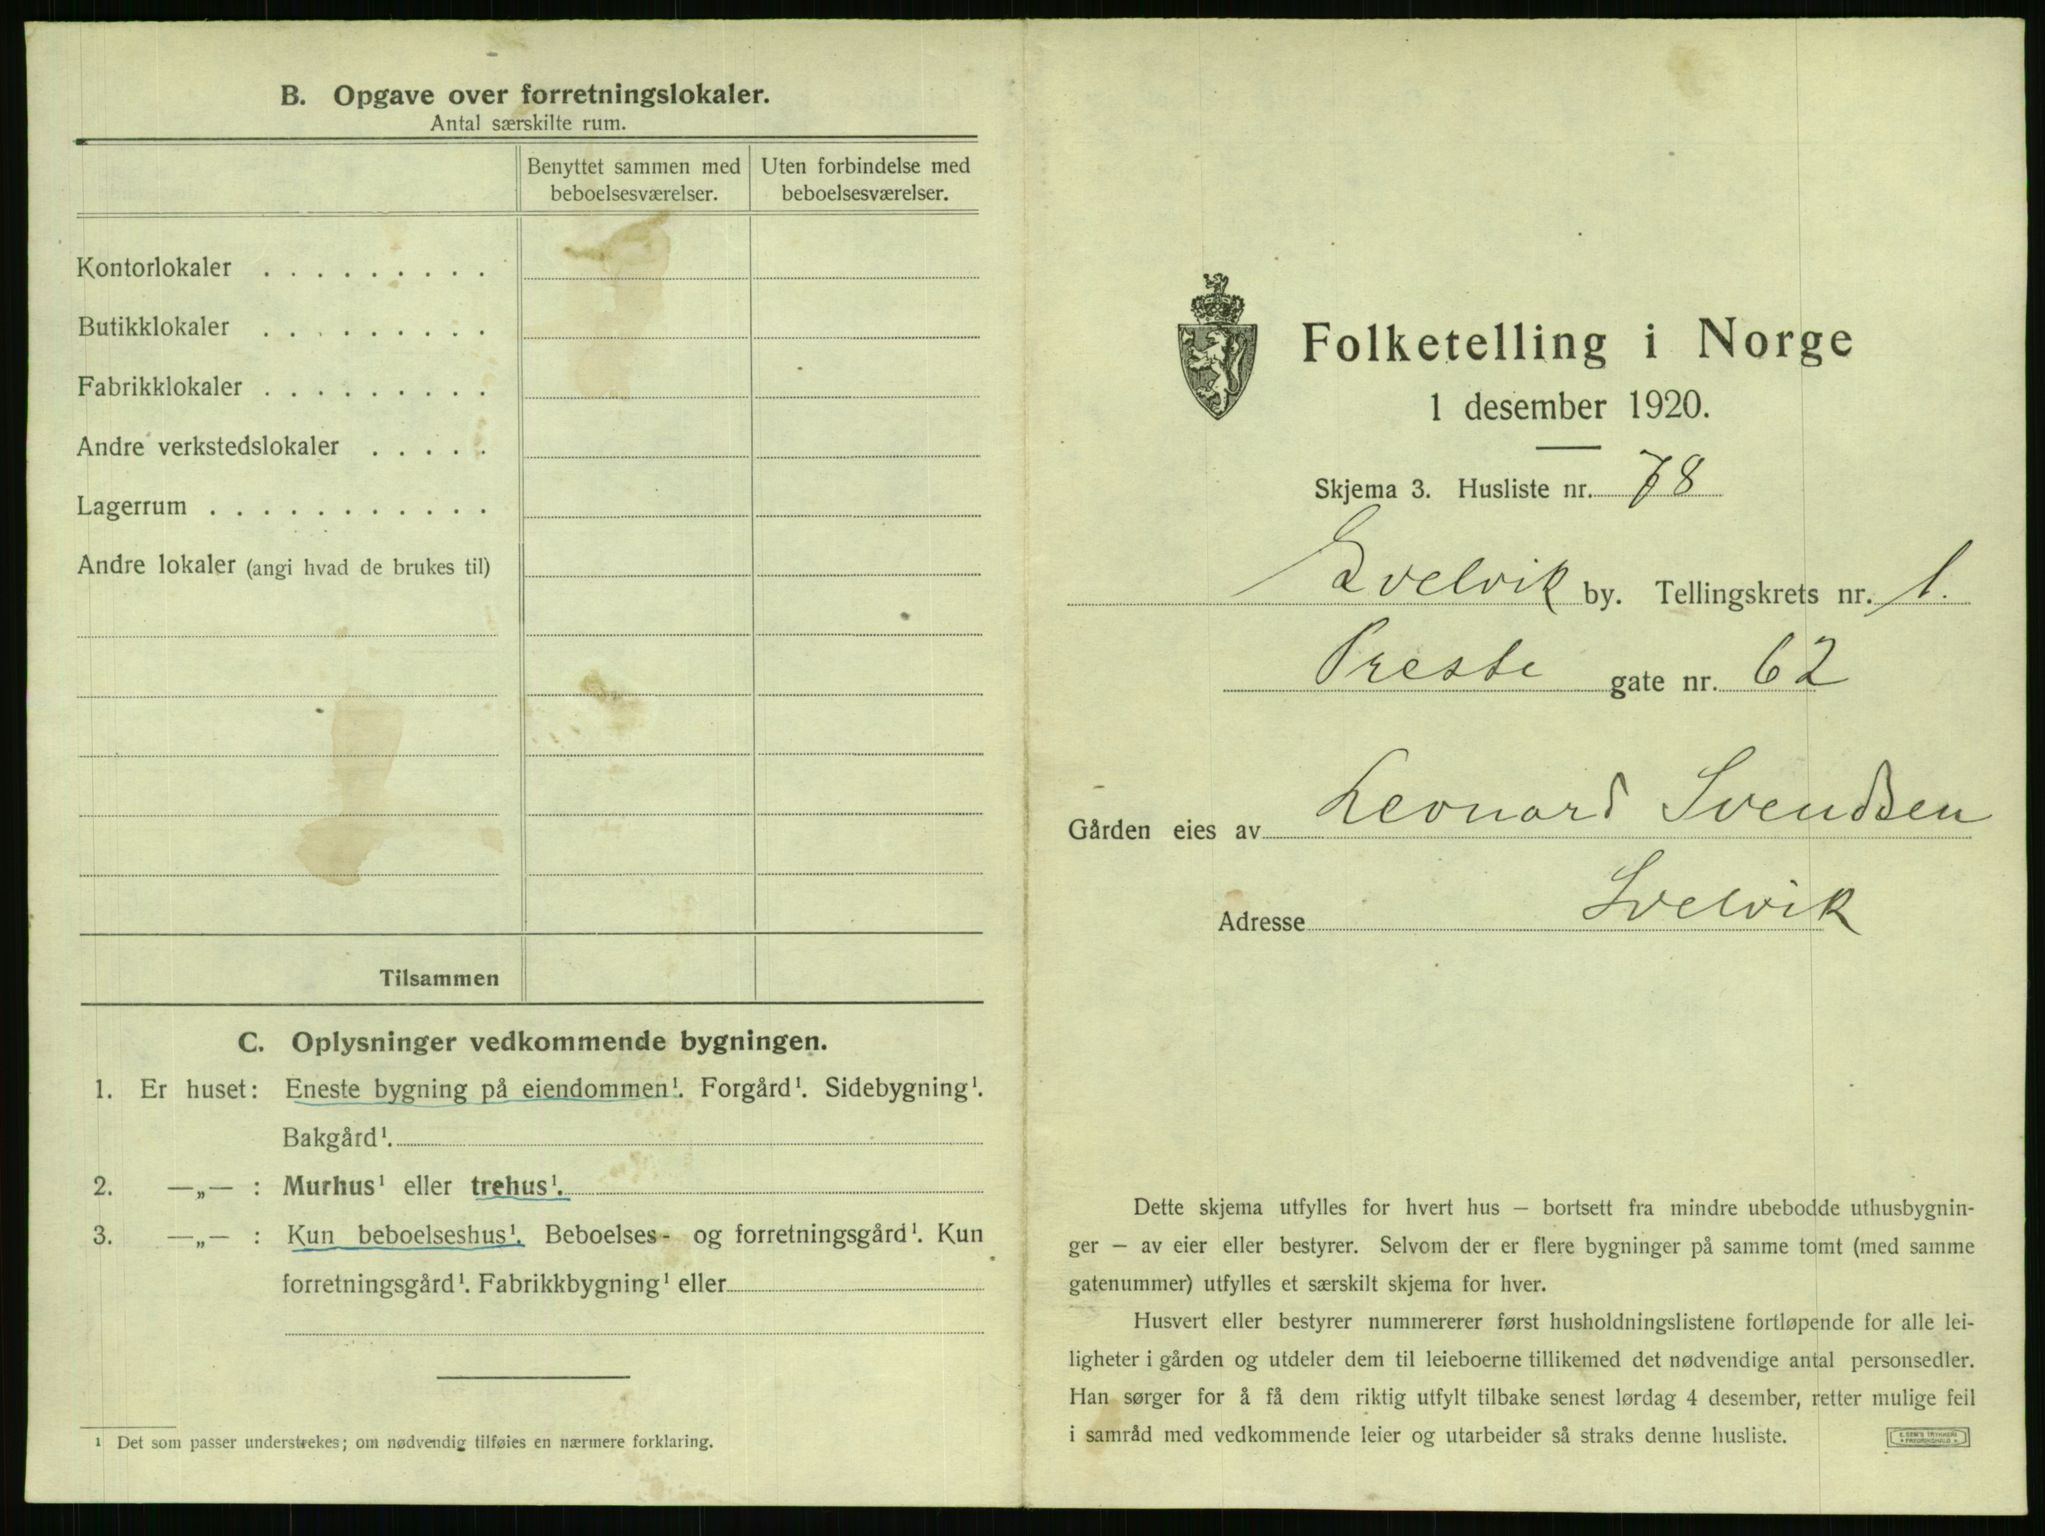 B. Opgave over forretningslokaler.
Antal særskilte rum.
Benyttet sammen med beboelsesværelser.
Uten forbindelse med beboelsesværelser.
Kontorlokaler . . . . . . . . .
Butikklokaler . . . . . . . . .
Fabrikklokaler . . . . . . . . .
Andre verkstedslokaler . . . . .
Lagerrum . . . . . . . . . . .
Andre lokaler (angi hvad de brukes til)
Tilsammen
C. Oplysninger vedkommende bygningen.
1. Er huset: Eneste bygning på eiendommen¹. Forgård¹. Sidebygning¹.
Bakgård¹.
2. —„— : Murhus¹ eller trehus¹.
3. —„— : Kun beboelseshus¹. Beboelses- og forretningsgård¹. Kun
forretningsgård¹. Fabrikkbygning¹ eller
¹ Det som passer understrekes; om nødvendig tilføies en nærmere forklaring.
Folketelling i Norge
1 desember 1920.
Skjema 3. Husliste nr. 78
Svelvik by. Tellingskrets nr. 1.
Preste gate nr. 62
Gården eies av Leonard Svendsen
Adresse Svelvik
Dette skjema utfylles for hvert hus — bortsett fra mindre ubebodde uthusbygnin-
ger — av eier eller bestyrer. Selvom der er flere bygninger på samme tomt (med samme
gatenummer) utfylles et særskilt skjema for hver.
Husvert eller bestyrer nummererer først husholdningslistene fortløpende for alle lei-
ligheter i gården og utdeler dem til leieboerne tillikemed det nødvendige antal personsedler.
Han sørger for å få dem riktig utfylt tilbake senest lørdag 4 desember, retter mulige feil
i samråd med vedkommende leier og utarbeider så straks denne husliste.
E. SEM'S TRYKKERI
FREDRIKSHALD